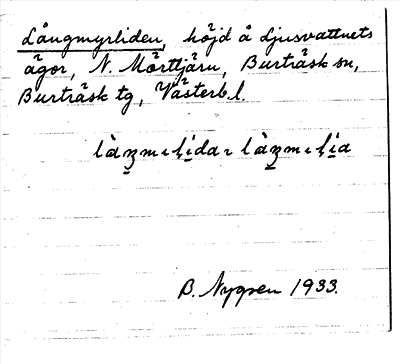 Långmyrliden, höjd å Ljusvattnets
ägor, N. Mörttjärn, Burträsk sn,
Burträsk tg, Västerb l.
B. Nygren 1933.